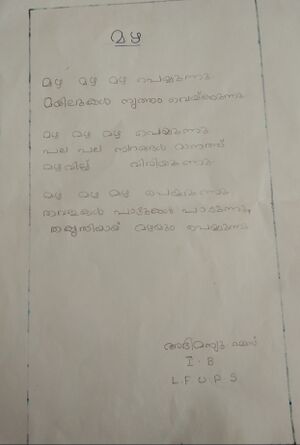 മഴ
മഴ മഴ മഴ പെയ്യുന്നു
മയിലുകൾ നൃത്തം വെയ്ക്കുന്നു
മഴ മഴ മഴ പെയ്യുന്നു
പല പല നിറങ്ങൾ വാനത്ത്
മഴവില്ല് വിരിയുന്നു
മഴ മഴ മഴ പെയ്യുന്നു
തവളകൾ പാട്ടുകൾ പാടുന്നു,
മഴയും പെയ്യുന്നു
അഭിമന്യു
I - B
L F U P S